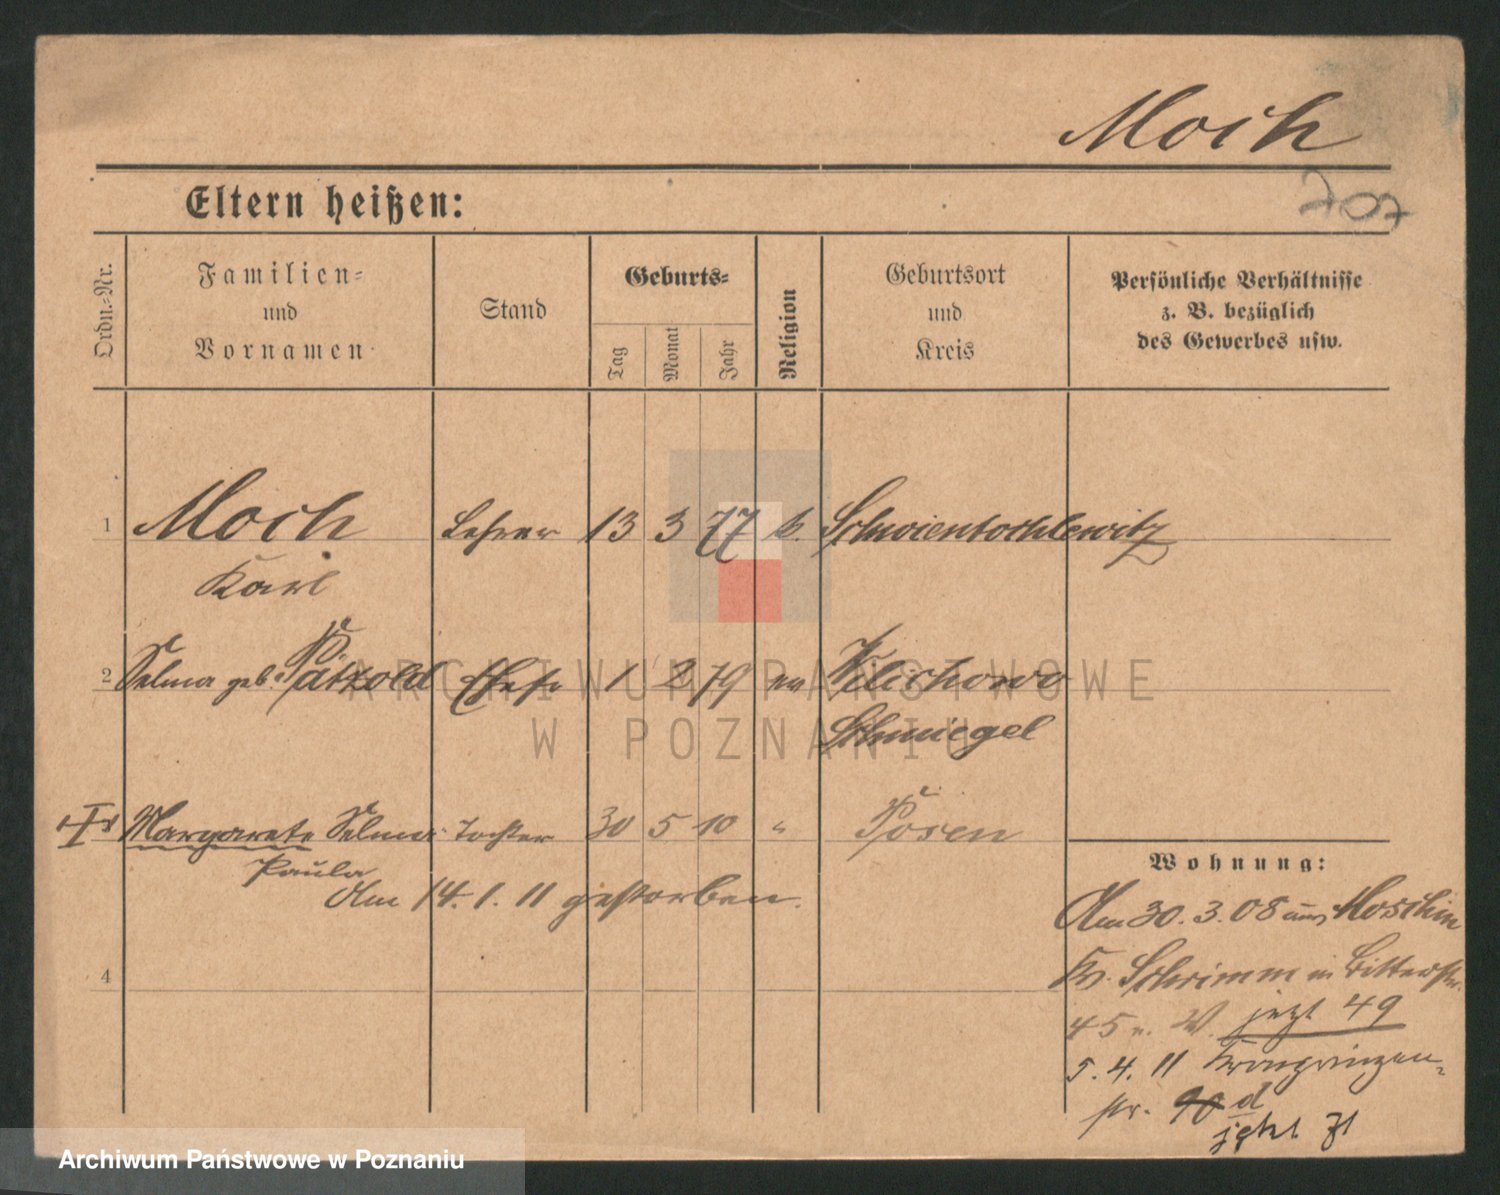 Moch
707
Eltern heißen:
Ordn.-Nr.
Familien-
und
Vornamen
Stand
Geburts-
Tag
Monat
Jahr
Religion
Geburtsort
und
Kreis
Persönliche Verhältnisse
z. B. bezüglich
des Gewerbes usw.
1 Moch Lehrer 13 3 77 k. Schwientochlewitz
Karl
2 Selma geb. Pätzold Ehefr 1 2 79 ev Wilichowo
Schmiegel
Margarete Selma Tochter 30 5 10 " Posen
Paula
Am 14. 1. 11 gestorben.
4
Wohnung:
Am 30. 3. 08 aus Moschin
Kr. Schrimm in Bitterstr.
45 n. W. jetzt 49
5. 4. 11 Kronprinzen-
str. 90 d
jetzt 31
ARCHIWUM PAŃSTWOWE
W POZNANIU
Archiwum Państwowe w Poznaniu